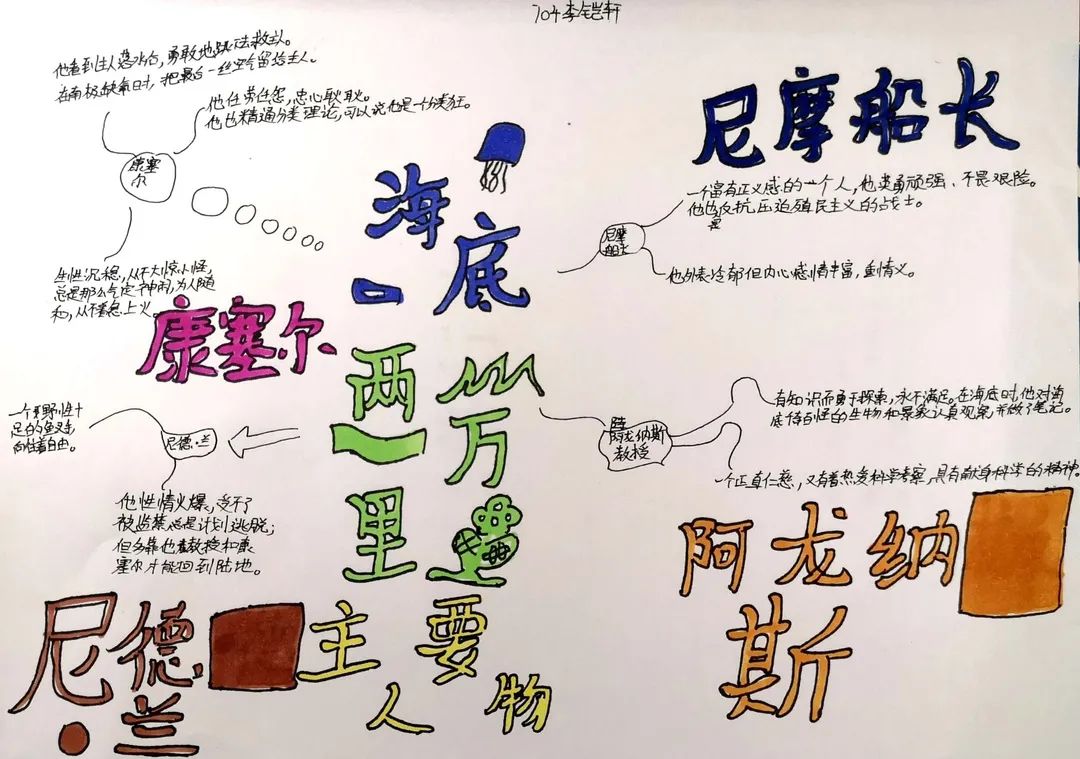 704李铠轩
他看到主人落水后，勇敢地跳下去救主人。
在南极缺氧时，把最后一丝空气留给主人。
他任劳任怨，忠心耿耿。
他也精通分类理论，可以说他是一分类狂。
康塞
尔
生性沉稳，从不大惊小怪，
总是那么气定神闲，为人随
和，从不着急上火
康塞尔
海底
两万
里
主要
人物
尼摩船长
一个富有正义感的一个人，他英勇顽强、不畏艰险。
他也是反抗压迫殖民主义的战士。
尼摩
船长
他外表冷郁但内心感情丰富，重情义。
有知识而勇于探索，永不满足。在海底时，他对海
底待到怪的生物和景象认真观察，并做了笔记。
阿龙纳斯
教授
一个正直仁慈，又有着热爱科学考察，具有献身科学的精神。
阿龙纳
斯
一个野性十
足的鱼叉手，
向往着自由。
尼德·兰
他性情火爆，受不了
被监禁总是计划逃脱；
但多靠他教授和康
塞尔才能回到陆地。
尼德
·兰